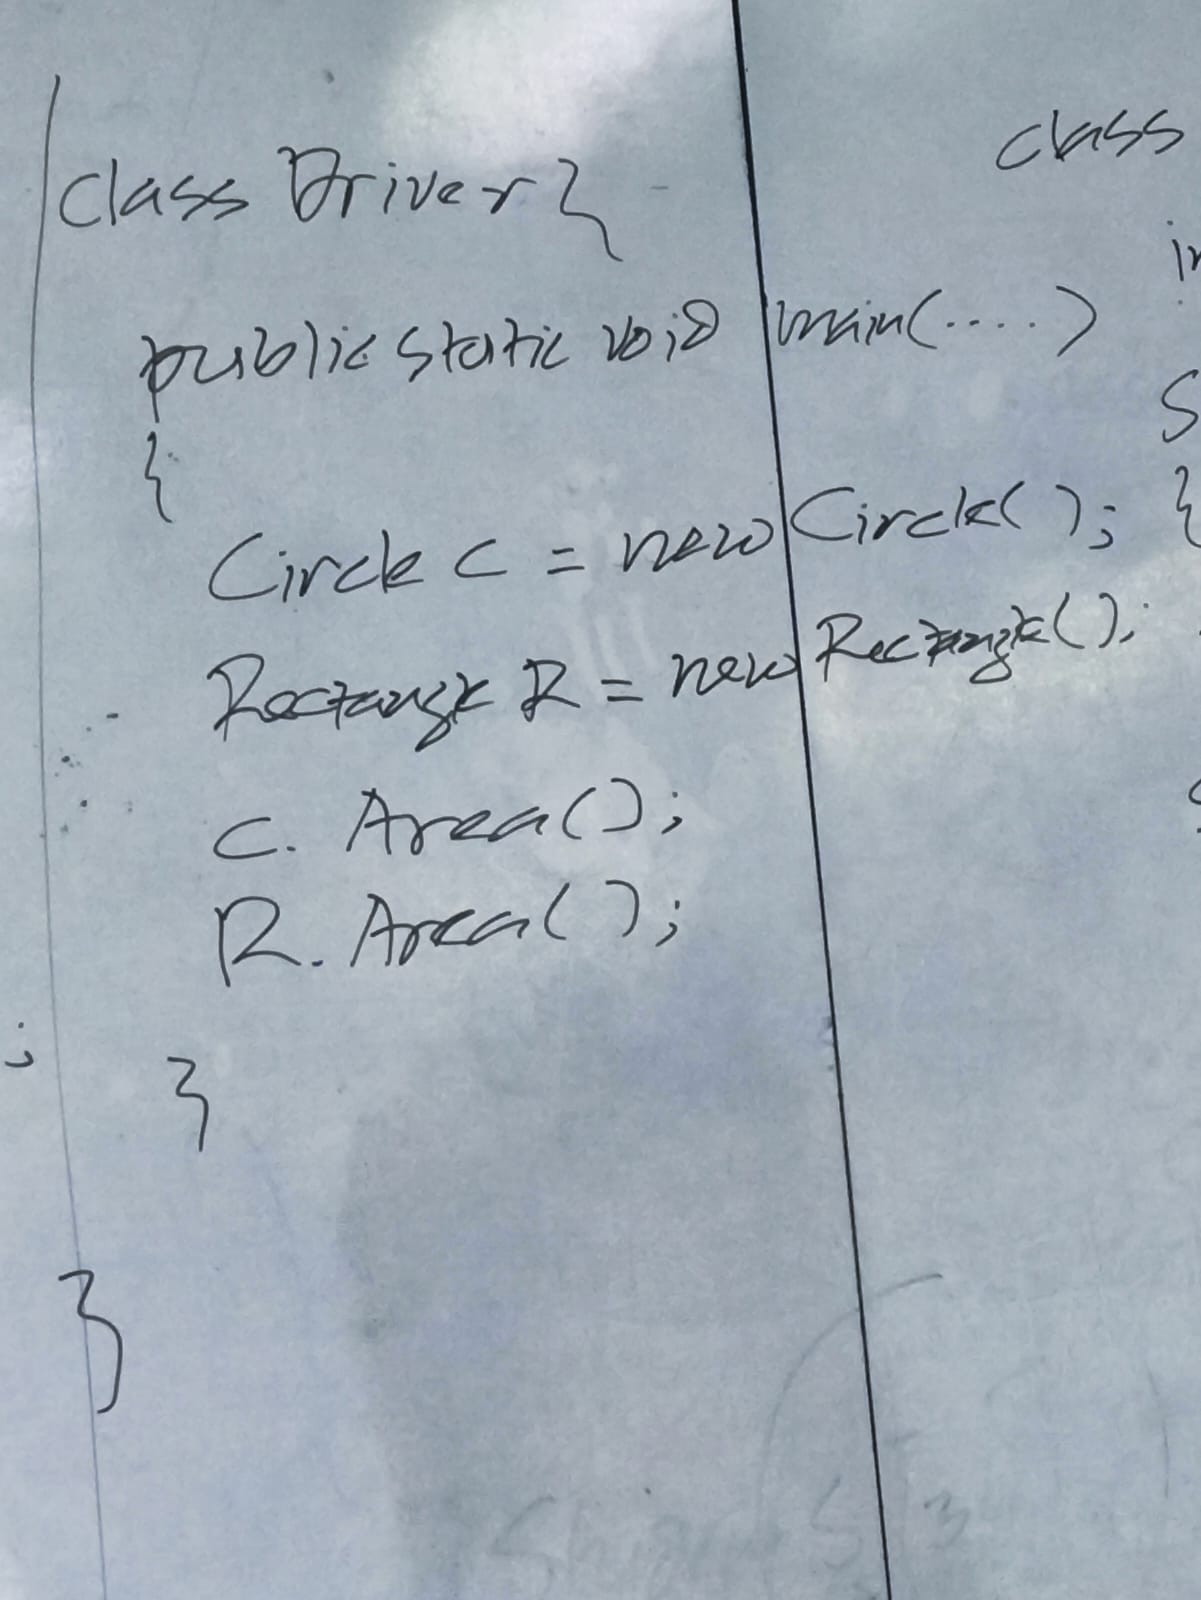 class Driver{
public static void main(.....)
{
Circle C = new Circle();
Rectangle R = new Rectangle();
C. Area();
R. Area();
}
}
class
in
S
{